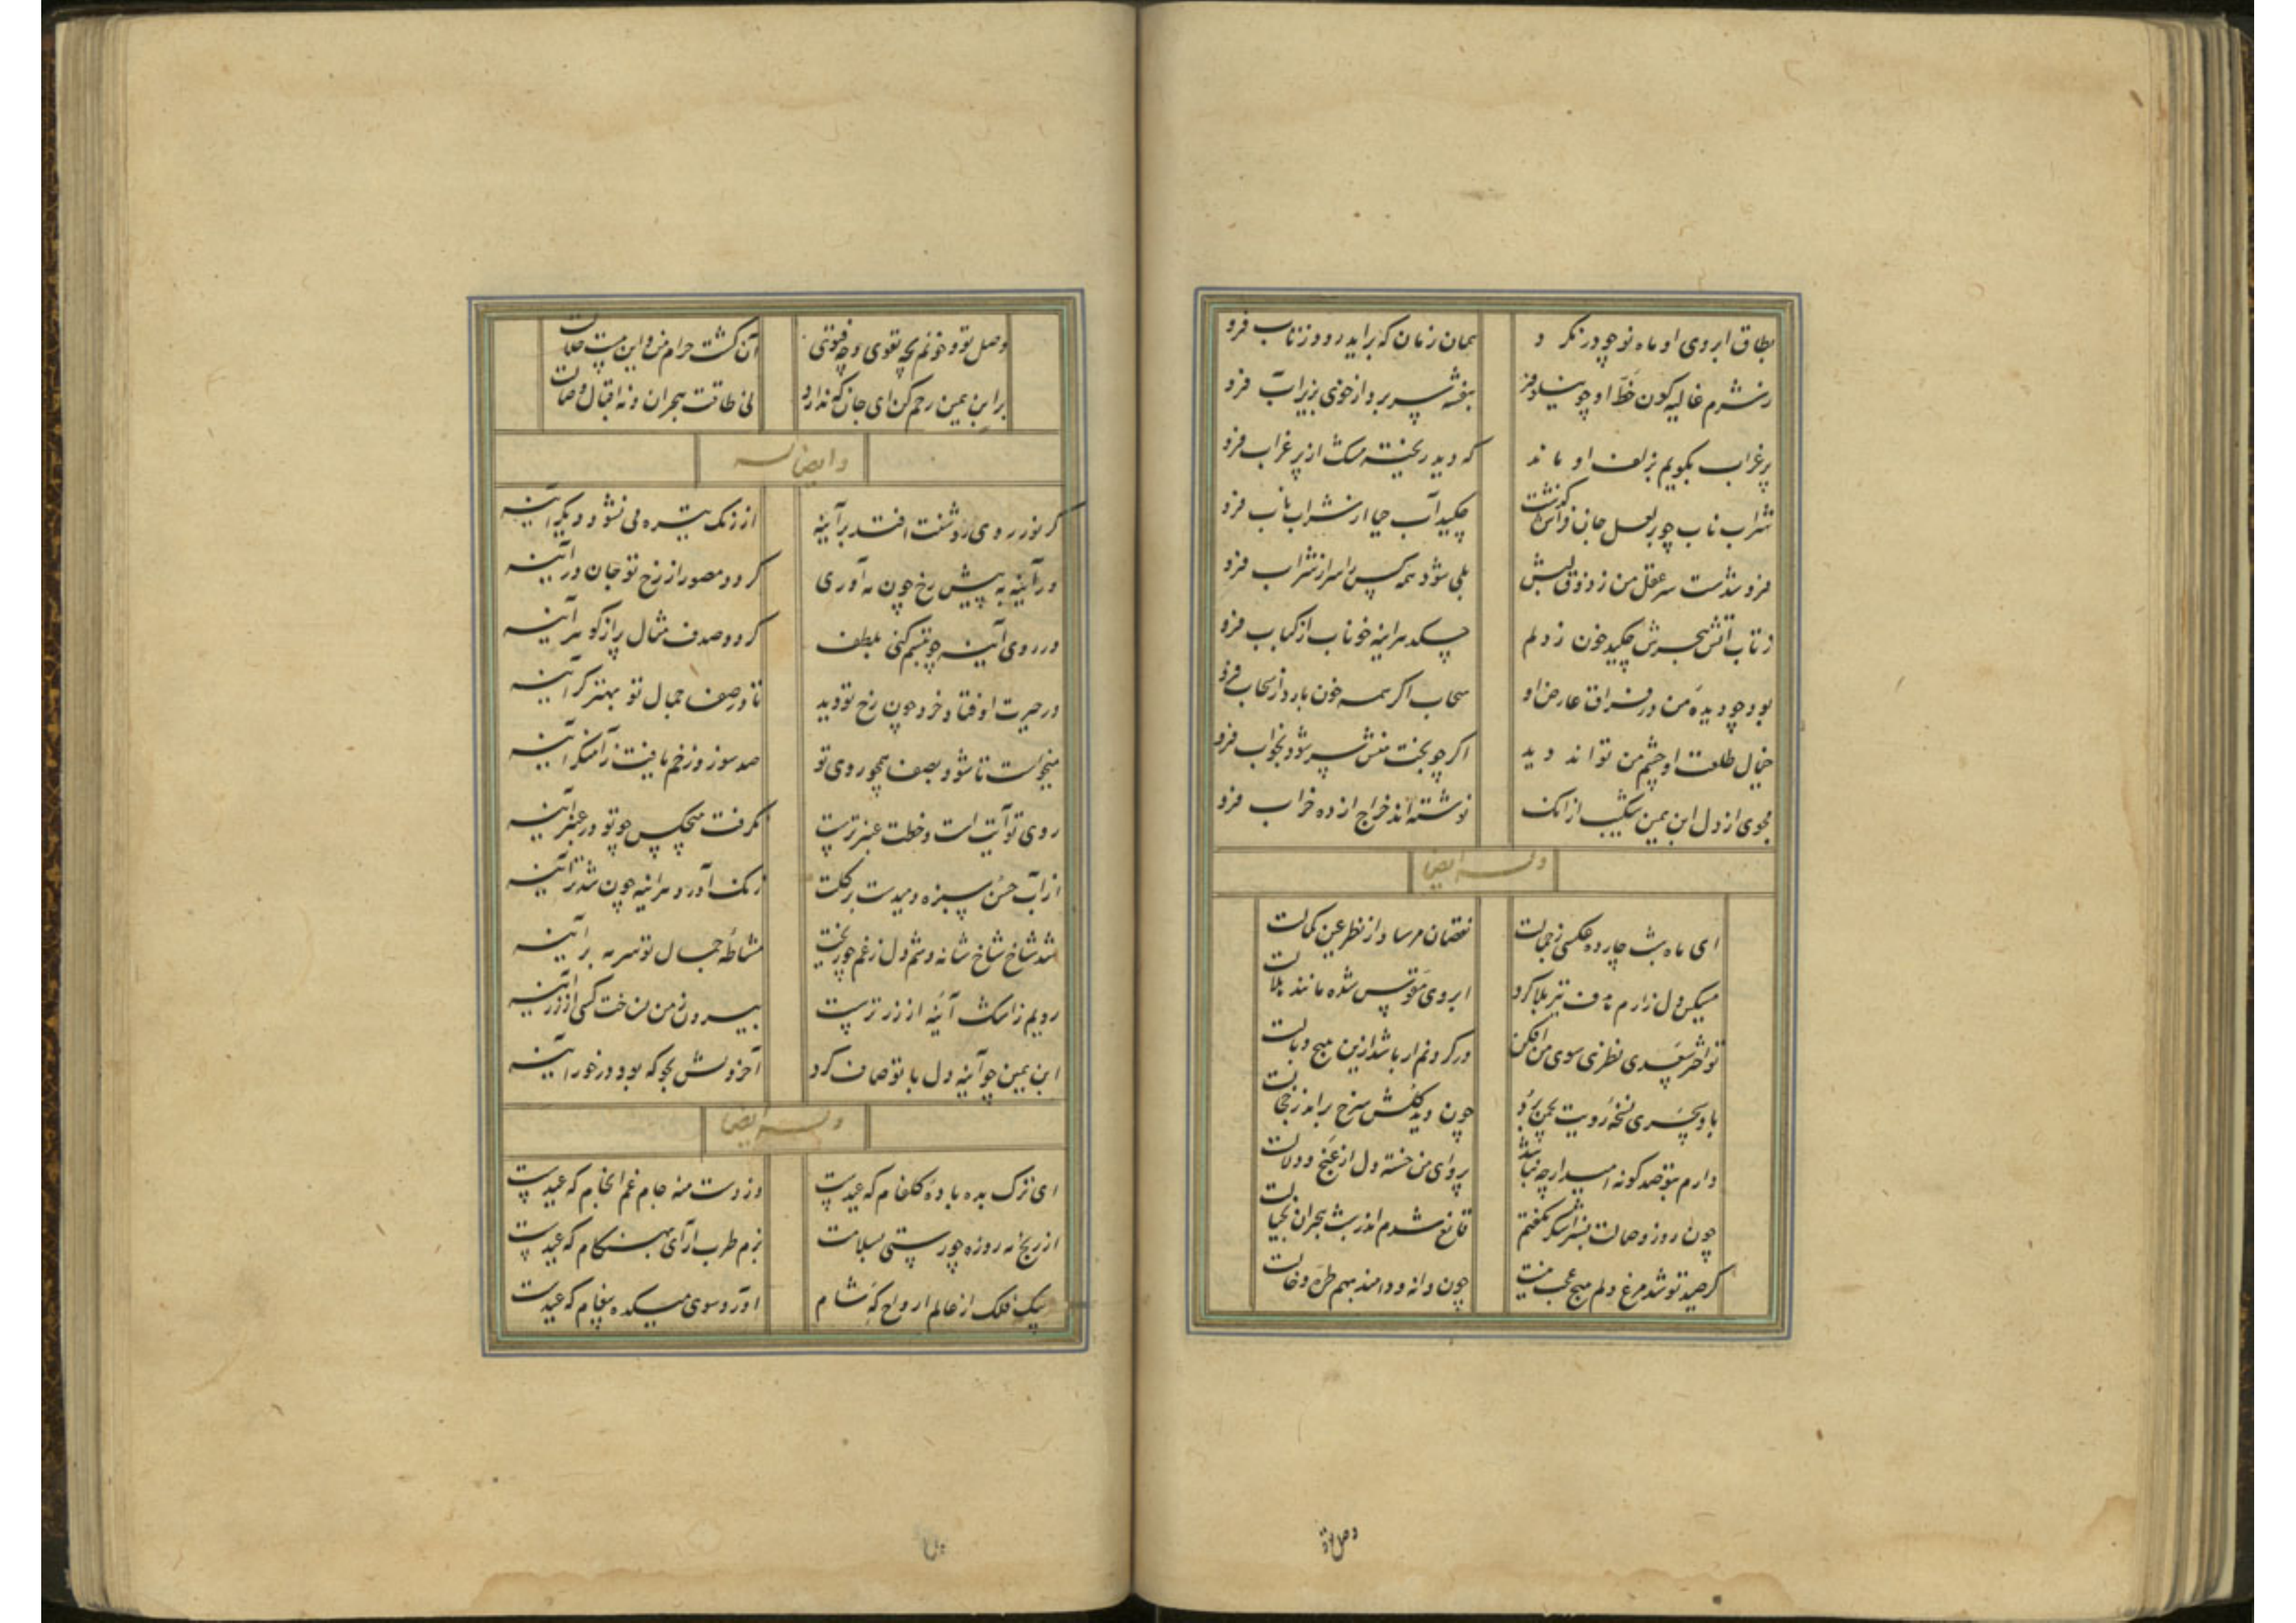 بطاق ابروی او ماه نو چو در نکر د
همان زمان که براید رود ز تاب فرو
ز شرم غالیه کون خط او چو نیلوفر
بنفشه سر برد از خوی بزیر آب فرو
پر غراب بکویم بزلف او ماند
که دید ریخته مشک از پر غراب فرو
شراب ناب چو بر لعل جان فزاش کذشت
چکید آب حیا از شراب ناب فرو
فرو شدست سر عقل من ز ذوق لبش
بلی شود همه کس را سر از شراب فرو
ز تاب آتش هجرش چکید خون ز دلم
چکد هر اینه خوناب از کباب فرو
بود چو دیده من در فراق عارض او
سحاب اکر همه خون بارد از سحاب فرو
خیال طلعت او چشم من تواند دید
اکر چو بخت منش سر شود بخواب فرو
مجوی از دل ابن یمین شکیب از انک
نوشته اند خراج از ده خراب فرو
وله ایضا
ای ماه شب چارده عکسی ز جمالت
نقصان مرساد از نظر عین کمالت
مسکین دل زارم هدف تیر بلا کرد
ابروی مقوس شده مانند هلالت
تو اختر سعدی نظری سوی من افکن
در کردنم ار باشد ازین هیچ وبالت
باد سحری نسخه رویت بچمن برد
چون دید کلش سرخ برامد ز خجالت
دارم بتو صد کونه امید ار چه نباشد
پروای من خسته دل از غنج و دلالت
چون روز وصالت بسزا شکر نکفتم
قانع شدم اندر شب هجران بخیالت
کر صید تو شد مرغ دلم هیچ عجب نیست
چون دانه و دامند بهم طره و خالت
وصل تو
وصل تو و خونم بچه تقوی و چه فتوی
آن کشت حرام من و این هست حلالت
بر ابن یمین رحم کن ای جان که ندارد
نی طاقت هجران و نه اقبال وصالت
و ایضا له
کر نور روی روشنت افتد بر آینه
از زنک تیره می نشود دیکر آینه
ور آینه به پیش رخ چون مه آوری
کردد مصور از رخ تو جان در آینه
در روی آینه چو تبسم کنی بلطف
کردد صدف مثال پر از کوهر آینه
در حیرت اوفتاد خرد چون رخ تو دید
تا در صف جمال تو بهتر کر آینه
میخواست تا شود بصفا همچو روی تو
صد سوز و زخم یافت ز آهنکر آینه
روی تو آیت است و خطت عنبر ترست
نکرفت هیچکس چو تو در عنبر آینه
از آب حسن سبزه دمیدست بر کلت
زنک آورد هر اینه چون شد تر آینه
شد شاخ شاخ شانه وشم دل ز غم چو ریخت
مشاطه جمال تو سر مه بر آینه
رویم ز اشک آینه از زر ترست
بیرون ز من نساخت کسی از زر آینه
ابن یمین چو آینه دل با تو صاف کرد
آخر دلش بجو که بود در خور آینه
وله ایضا
ای ترک بده باده کلفام که عیدست
وز دست منه جام غم انجام که عیدست
از رنج مه روزه چو رستی بسلامت
بزم طرب آرای بهنکام که عیدست
پیک فلک از عالم ارواح که شام
آورد سوی میکده پیغام که عیدست